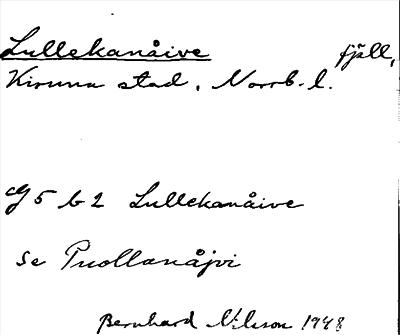 Lullekanåive fjäll,
Kiruna stad, Norrb. l.
G 5 b 2 Lullekanåive
se Puollanåjvi
Bernhard Nilsson 1948